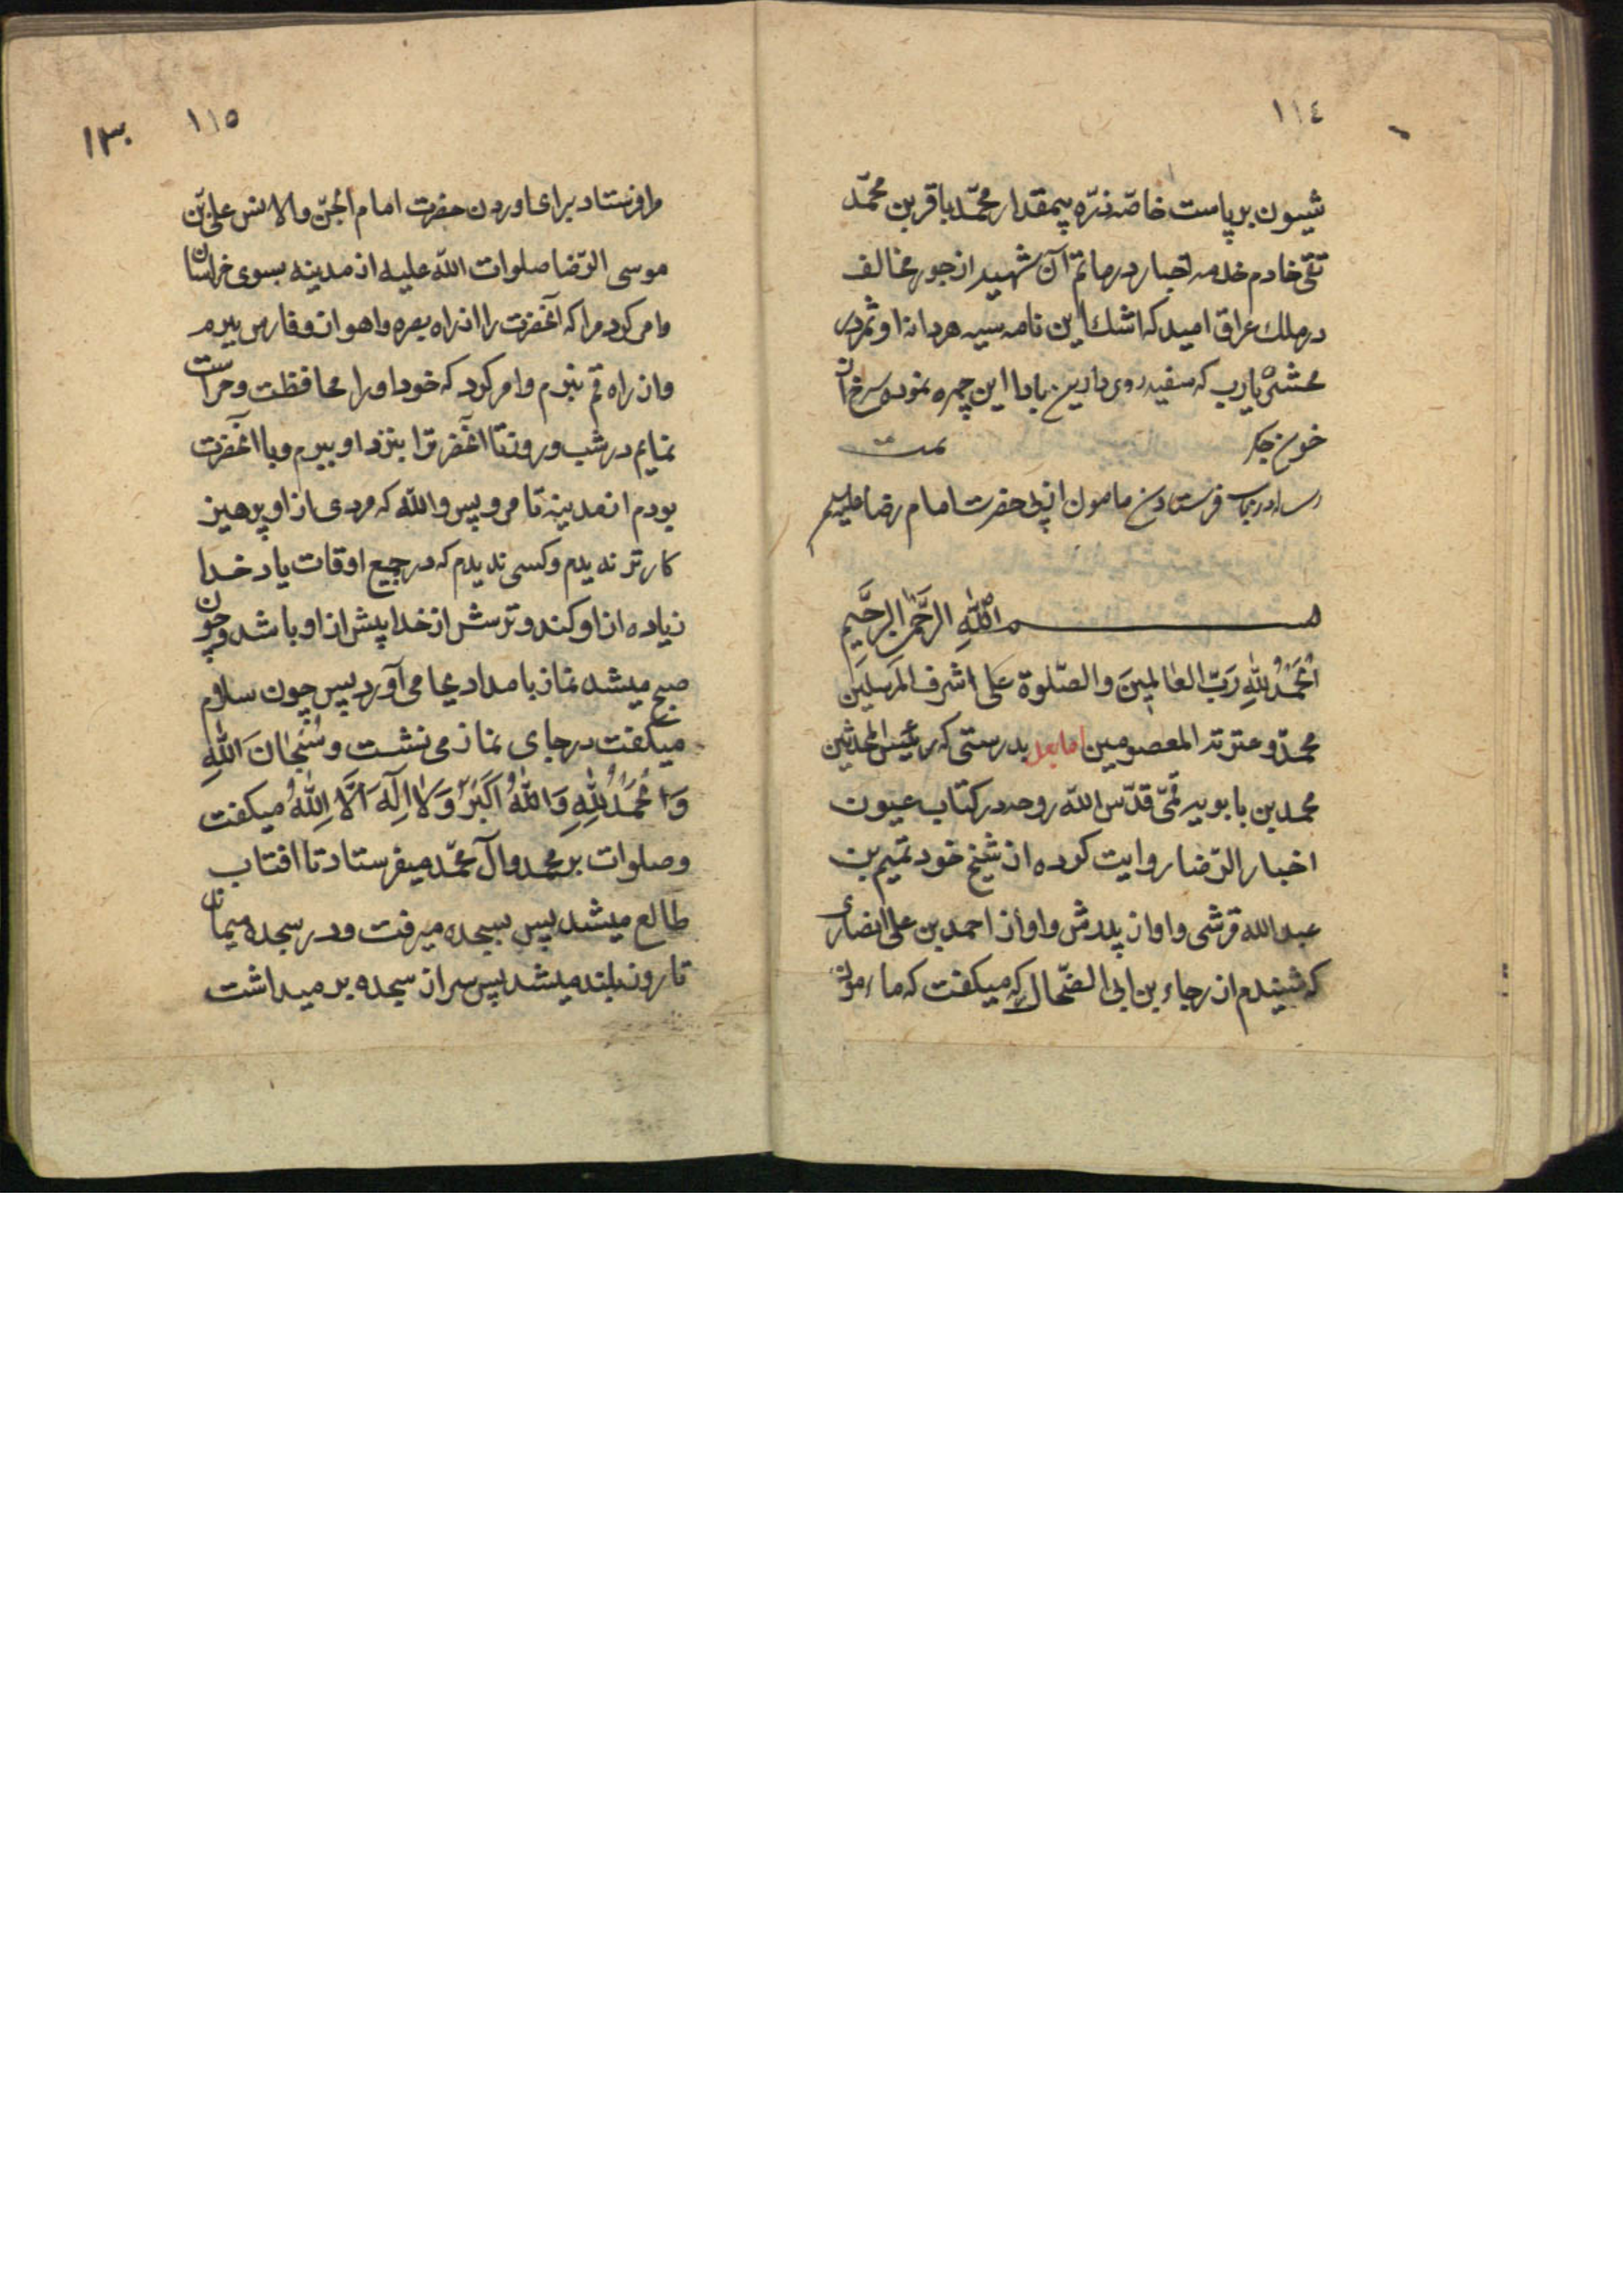 ١١٤
شیون بر پاست خاصّه ذرّه بیمقدار محمّد باقر بن محمّد
تقی خادم خدمه اخبار در ماتم آن شهید از جور مخالف
در ملك عراق امید که اشك این نامه سیه هر دانه او ثمر در
محشر یا رب که سفید روی دارین بادا این چهره نموده سرخ از
خون جگر تمت
فرستادن مامون از پی حضرت امام رضا علیه السلم
بسم اللّٰهِ الرَّحمٰن الرَّحیمِ
اَلحَمدُ لِلّٰهِ رَبّ العٰالمینَ والصّلوة علی اشرف المرسلین
محمّد و عترته المعصومین اما بعد بدرستی که رئیس المحدثین
محمد بن بابویه قمّی قدّس اللّه روحه در کتاب عیون
اخبار الرّضا روایت کرده از شیخ خود تمیم بن
عبد الله قرشی و او از پدرش و او از احمد بن علی انصاری
که شنیدم از رجاء بن ابی الضّحاك که میکفت که مأمون
١١٥
١٣٠
مرا فرستاد برای اوردن حضرت امام الجنّ والانس علی بن
موسی الرّضا صلوات اللّه علیه از مدینه بسوی خراسان
و امر کرد مرا که آنحضرت را از راه بصره و اهواز و فارس ببرم
و از راه قم نبرم و امر کرد که خود او را محافظت و حراست
نمایم در شب و روز تا آنحضرت را بنزد او ببرم و با آنحضرت
بودم از مدینه تا مرو پس واللّه که مردی از او پرهیز
کارتر ندیدم و کسی ندیدم که در جمیع اوقات یاد خدا
زیاده از او کند و ترسش از خدا پیش از او باشد و چون
صبح میشد نماز بامداد بجا می آورد پس چون سلام
میکفت در جای نماز می نشست و سُبْحٰانَ اللّٰهِ
وَالحَمدُ لِلّٰهِ وَاللّٰهُ اَکبَرُ وَلاٰ اِلٰهَ اِلَّا اللّٰهُ میکفت
و صلوات بر محمد و آل محمّد میفرستاد تا افتاب
طالع میشد پس بسجده میرفت و در سجده میماند
تا روز بلند میشد پس سر از سجده بر میداشت